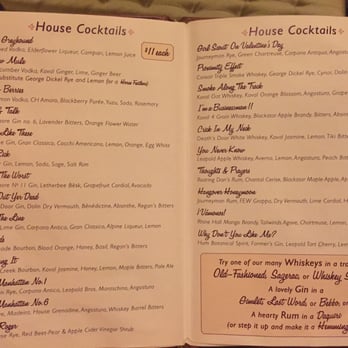 House Cocktails
Greyhound
Vodka, Elderflower Liqueur, Campari, Lemon Juice
$11 each
Mule
Vodka, Koval Ginger, Lime, Ginger Beer
Substitute George Dickel Rye and Lemon (for a Horse Feather)
Berries
Vodka, CH Amaro, Blackberry Purée, Yuzu, Soda, Rosemary
Talk
Gin no. 6, Lavender Bitters, Orange Flower Water
Like These
Gin, Gran Classico, Cocchi Americano, Lemon, Orange, Egg White
Gin, Lemon, Soda, Sage, Salt Rim
The Worst
Nº 11 Gin, Letherbee Bësk, Grapefruit Cordial, Avocado
Out Yer Dead
Gin, Dolin Dry Vermouth, Bénédictine, Absinthe, Regan's Bitters
The Line
Gin, Carpano Antica, Gran Classico, Alpine Liqueur, Lemon
Bourbon, Blood Orange, Honey, Basil, Regan's Bitters
It
Creek Bourbon, Koval Jasmine, Honey, Lemon, Maple Bitters, Pale Ale
Manhattan No.1
Rye, Carpano Antica, Leopold Bros. Maraschino, Angostura
Manhattan No.6
Madeira, House Grenadine, Angostura, Whiskey Barrel Bitters
Roger
Rye, Red Beet-Pear & Apple Cider Vinegar Shrub
House Cocktails
Girl Scout On Valentine's Day
Journeyman Rye, Green Chartreuse, Carpano Antica, Angostura
Proximity Effect
Corsair Triple Smoke Whiskey, George Dickel Rye, Cynar, Dolin
Smoke Along The Track
Koval Oat Whiskey, Koval Orange Blossom, Angostura, Grape
I'm a Businessman!!
Koval 4 Grain Whiskey, Blackstar Apple Brandy, Bitters, Absin
Crick In My Neck
Death's Door White Whiskey, Koval Jasmine, Lemon, Tiki Bitters
You Never Know
Leopold Apple Whiskey, Averna, Lemon, Angostura, Peach Bitters
Thoughts & Prayers
Bearing Dan's Rum, Chantal Cerise, Blackstar Maple Cordial,
Hangover Honeymoon
Journeyman Rum, FEW Grappa, Dry Vermouth, Lime Cordial,
¡Vámonos!
Rhine Hall Mango Brandy, Tailwinds Agave, Chartreuse, Lemon,
Why Don't You Like Me?
Hum Botanical Spirit, Former's Gin, Leopold Tart Cherry, Lem
Try one of our many Whiskeys in a tra
Old-Fashioned, Sazerac, or Whiskey S
A lovely Gin in a
Gimlet, Last Word, or Bebbo,
A hearty Rum in a Daquiri
(or step it up and make it a Hemming